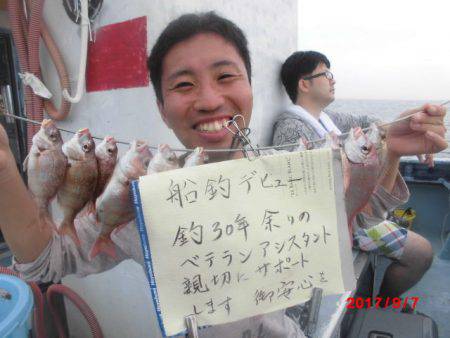 船釣デビュー
釣30年余りの
ベテランアシスタント
親切にサポート
します 御安心を
2017/9/7